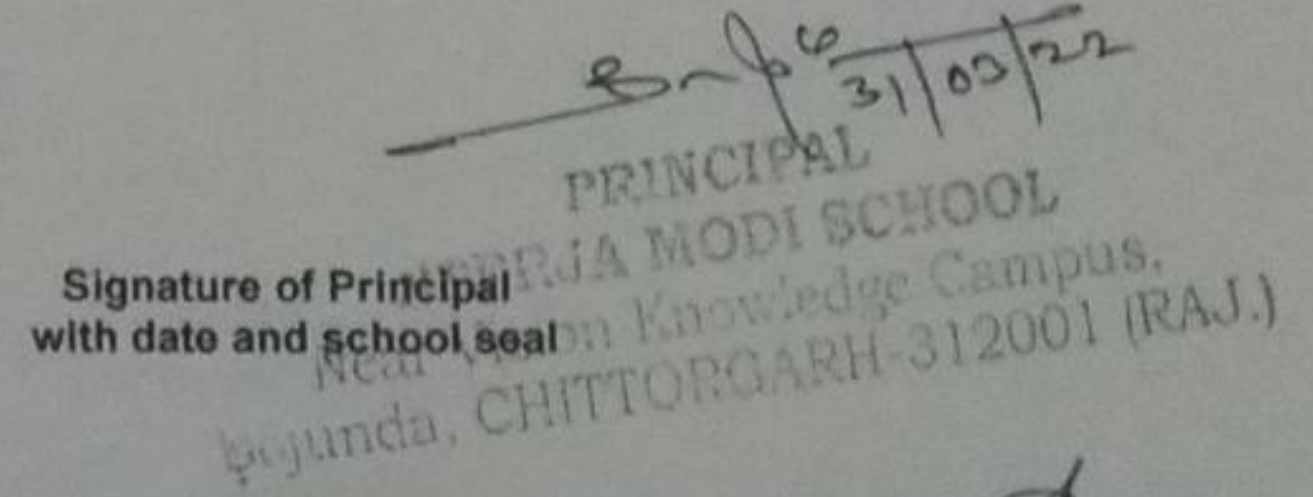 31/03/22
PRINCIPAL
MODI SCHOOL
Knowledge Campus,
CHITTORGARH-312001 (RAJ.)
Signature of Principal
with date and school seal